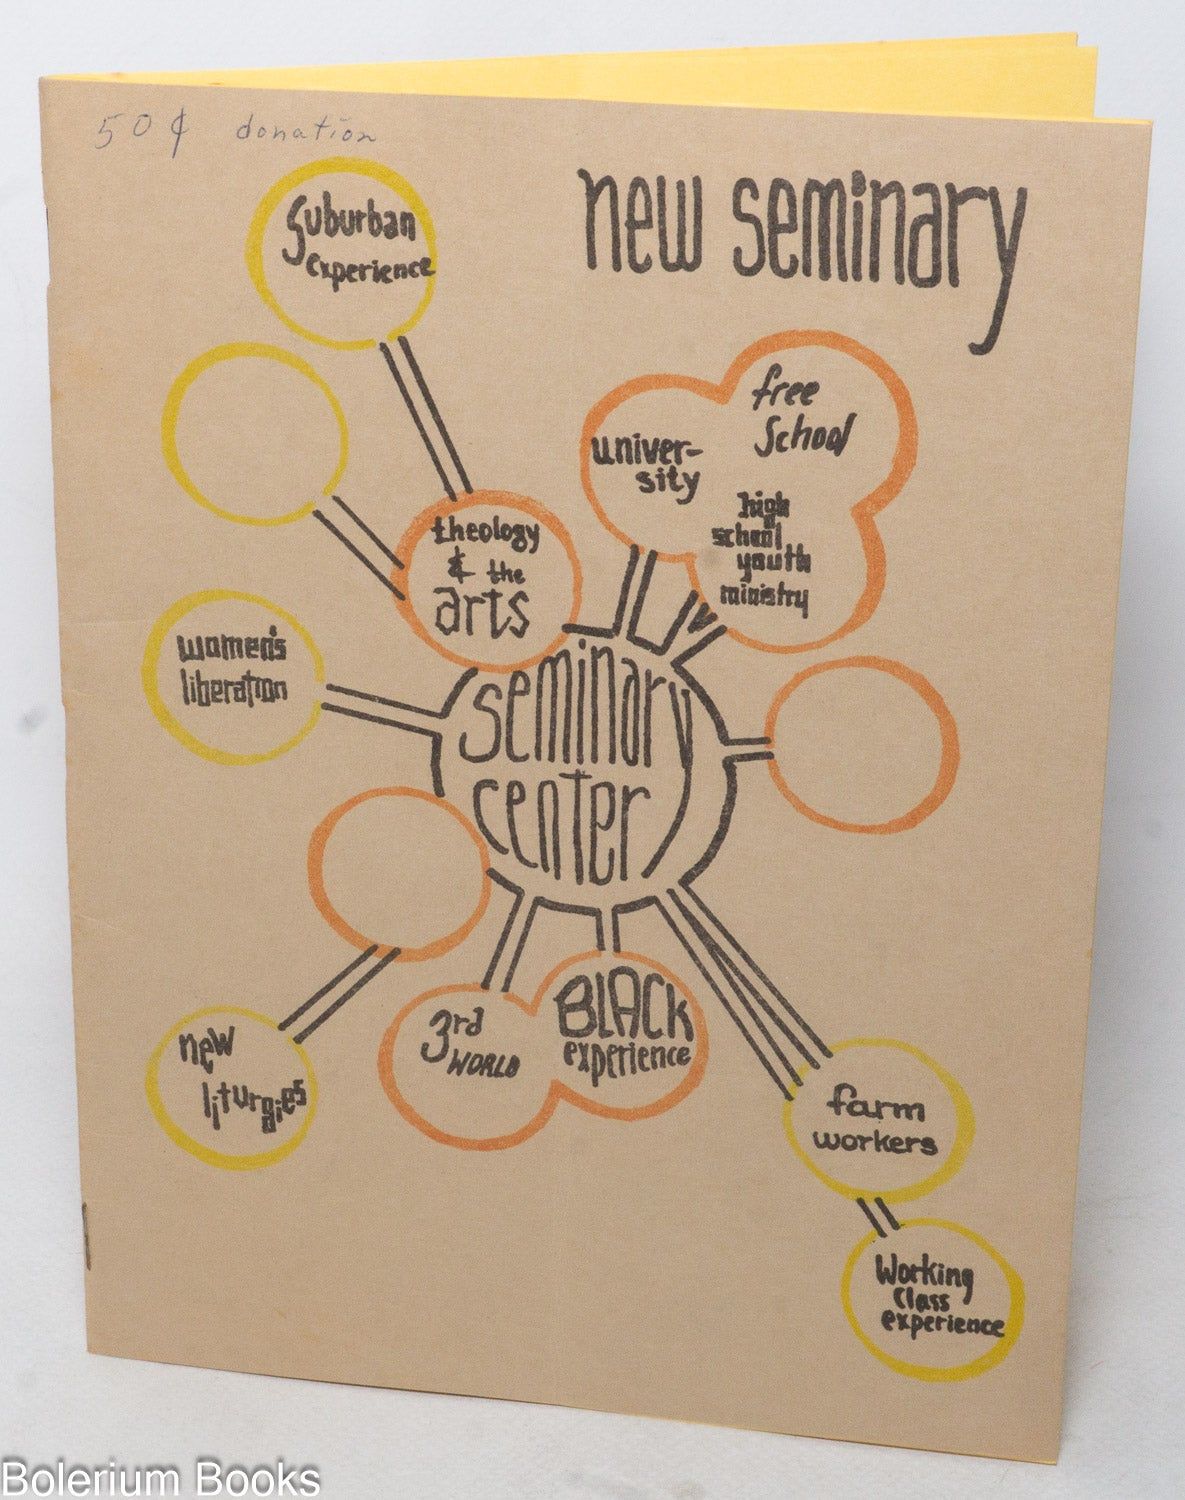 50¢ donation
new seminary
Suburban
experience
free
School
univer-
sity
high
school
youth
ministry
theology
& the
arts
women's
liberation
seminary
center
3rd
WORLD
BLACK
experience
new
liturgies
farm
workers
Working
Class
experience
Bolerium Books